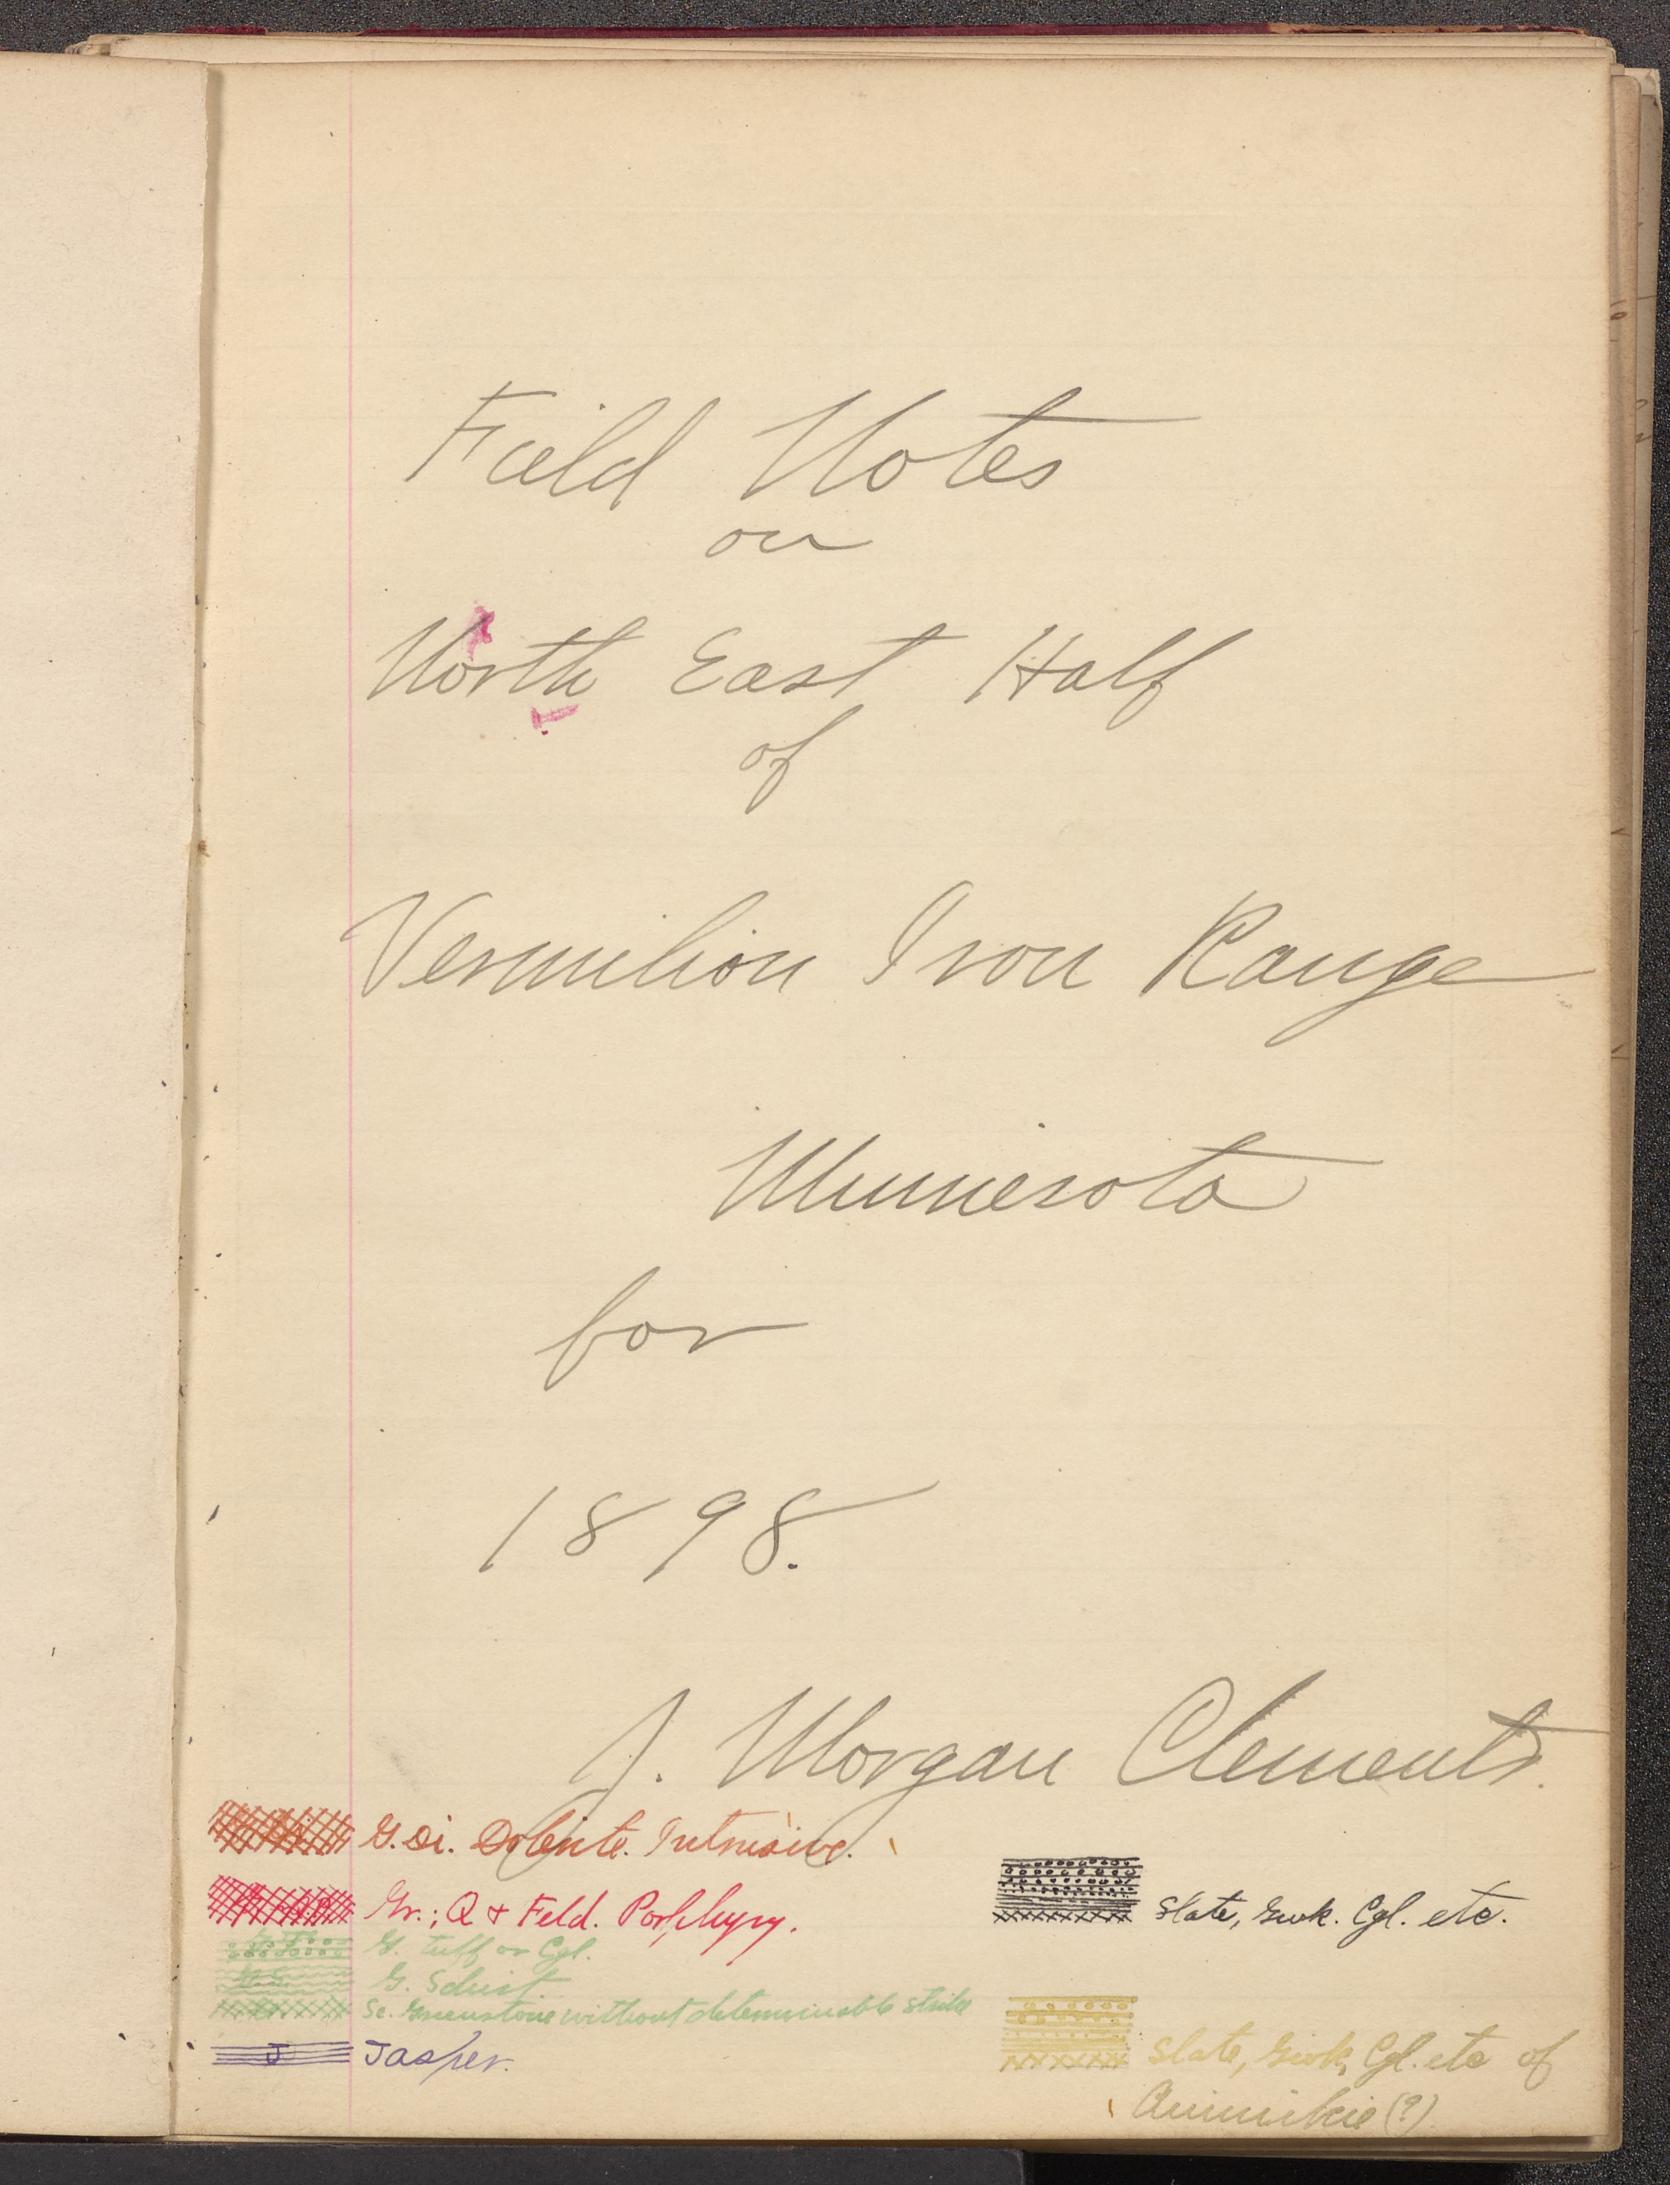 Field Notes
on
North East Half
of
Vermilion Iron Range
Minnesota
for
1898.
J. Morgan Clements.
G. Di. Dolerite. Intrusive.
Gr.; Q + Feld. Porphyry.
G. tuff or Cgl.
G. Schist.
Sc. Greenstone without determinable strike
J Jasper.
Slate, Gwk. Cgl. etc.
Slate, Gwk, Cgl. etc of
Animikie (?)